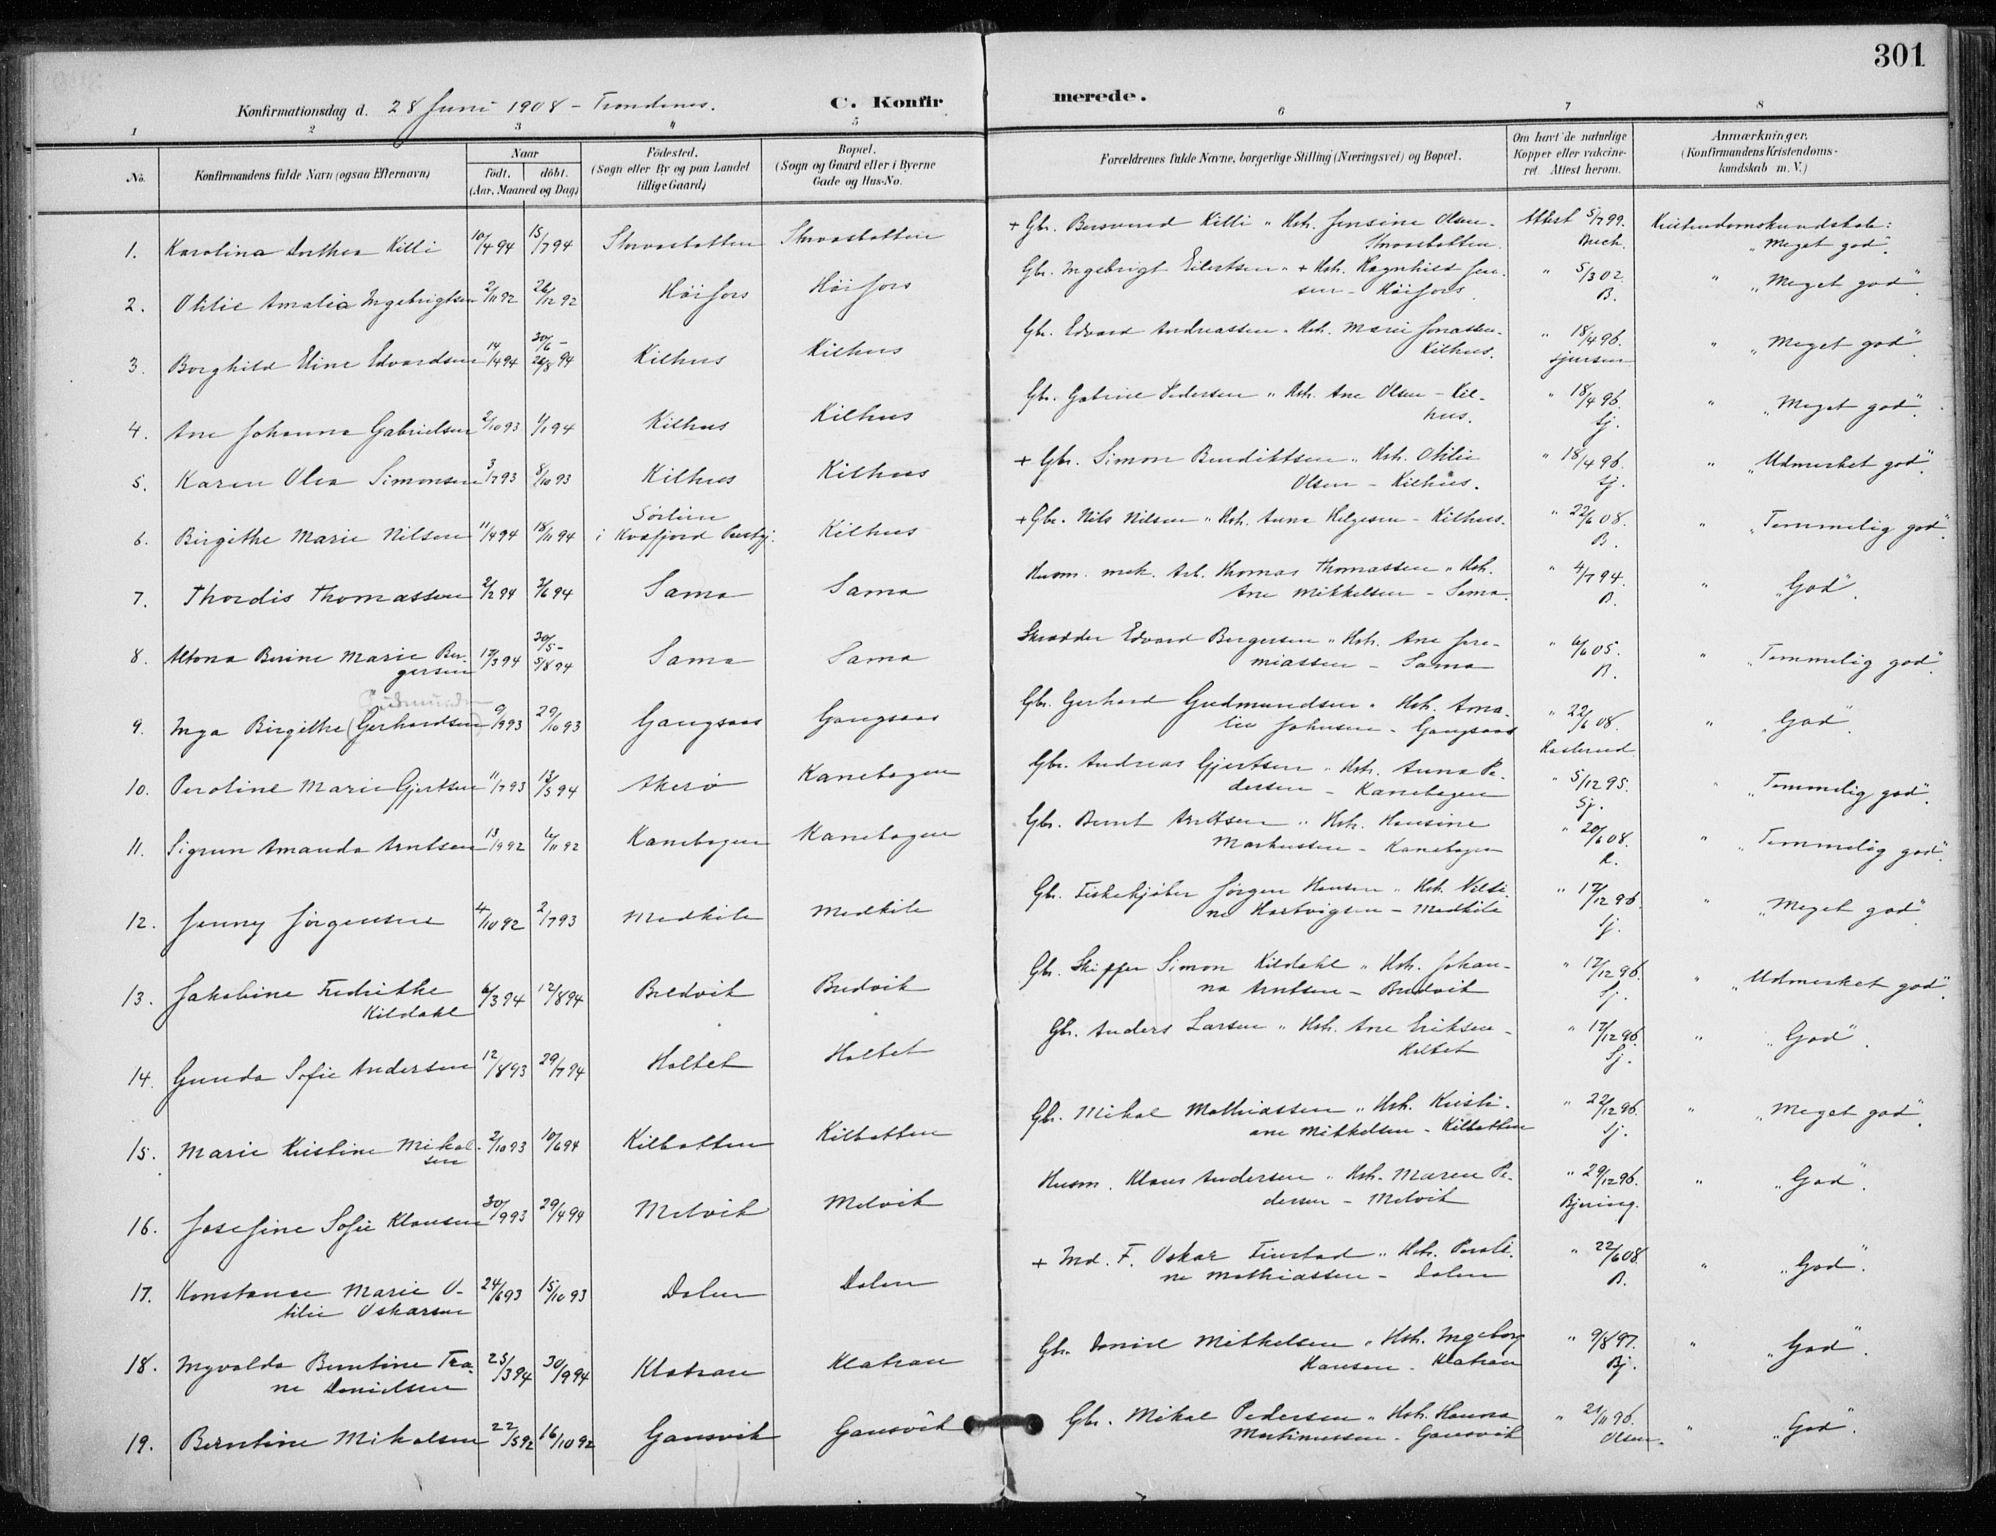 301
Konfirmationsdag d. 28 Juni 1908 – Trondenes. C. Konfirmerede.
1 2 3 " 5 6 7 8
No. Konfirmandens fulde Navn (ogsaa Efternavn) Naar født. døbt. (Aar, Maaned og Dag) Fødested. (Sogn eller By og paa Landet tillige Gaard) Bopæl. (Sogn og Gaard eller i Byerne Gade og Hus-No. Forældrenes fulde Navne, borgerlige Stilling (Næringsvei) og Bopæl. Om havt de naturlige Kopper eller vakcineret. Attest herom. Anmærkninger. (Konfirmandens Kristendomskundskab m. V.)
1. Karolina Dorthea Killi 10/4 94 15/7 94 Storvasbotten Storvasbotten + Gbr. Bersvend Killi " Hstr. Jensine Olsen - Storvasbotten. Attest 5/7 99. Buch. Kristendomskundskab: "Meget god".
2. Otilie Amalia Ingebrigtsen 2/11 92 26/12 92 Høifors Høifors Gbr. Ingebrigt Eilertsen " + Hstr. Ragnhild Jensen - Høifors. " 5/3 02. B. " "Meget god".
3. Borghild Eline Edvardsen 14/4 94 30/6 - 26/8 94 Kilhus Kilhus Gbr. Edvard Andreassen " Hstr. Marie Jonassen - Kilhus. " 18/4 96. Sjursen " "Meget god".
4. Ane Johanna Gabrielsen 2/10 93 1/1 94 Kilhus Kilhus Gbr. Gabriel Pedersen " Hstr. Ane Olsen - Kilhus. " 18/4 96. Sj. " "Meget god".
5. Karen Olea Simonsen 3/7 93 8/10 93 Kilhus Kilhus + Gbr. Simon Bendiktsen " Hstr. Otilie Olsen - Kilhus. " 18/4 96. Sj. " "Udmerket god".
6. Birgithe Marie Nilsen 11/4 94 18/11 94 Sørlien i Kvæfjord Prestgj. Kilhus + Gbr. Nils Nilsen " Hstr. Anna Helgesen - Kilhus. " 22/6 08. B. " "Temmelig god".
7. Thordis Thomassen 2/2 94 3/6 94 Sama Sama Husm. mek. Arb. Thomas Thomassen " Hstr. Ane Mikkelsen - Sama. " 4/7 94. B. " "God".
8. Altona Berine Marie Bergersen 17/3 94 30/5 - 5/8 94 Sama Sama Skrædder Edvard Bergersen " Hstr. Ane Jeremiassen - Sama " 6/6 05. B. " "Temmelig god".
Gudmundsen
9. Inga Birgithe (Gerhardsen) 9/9 93 29/10 93 Gangsaas Gangsaas Gbr. Gerhard Gudmundsen " Hstr. Amalie Johnsen - Gangsaas " 22/6 08. Rasterud " "God".
10. Peroline Marie Gjertsen 11/7 93 13/5 94 Akerø Kanebogen Gbr. Andreas Gjertsen " Hstr. Anna Pedersen - Kanebogen " 5/12 95. Sj. " "Temmelig god".
11. Sigrun Amanda Arntsen 13/9 92 6/11 92 Kanebogen Kanebogen Gbr. Bernt Arntsen " Hstr. Hansine Markussen - Kanebogen " 20/6 08. R. " "Temmelig god".
12. Jenny Jørgensen 4/10 92 2/7 93 Medkila Medkila Gbr. Fiskekjøber Jørgen Hansen " Hstr. Nilsine Hartvigsen - Medkila " 17/12 96. Sj. " "Meget god".
13. Jakobine Fredrikke Kildahl 6/3 94 12/8 94 Bredvik Bredvik Gbr. Skipper Simon Kildahl " Hstr. Johanna Arntsen - Bredvik " 17/12 96. Sj. " "Udmerket god".
14. Gunda Sofie Andersen 12/8 93 29/7 94 Holtet Holtet Gbr. Anders Larsen " Hstr. Ane Eriksen - Holtet " 17/12 96. Sj. " "God".
15. Marie Kristine Mikalsen 2/10 93 10/6 94 Kilbotten Kilbotten Gbr. Mikal Mathiassen " Hstr. Kristiane Mikkelsen - Kilbotten " 22/12 96. Sj. " "Meget god".
16. Josefine Sofie Klausen 30/9 93 29/4 94 Melvik Melvik Husm. Klaus Andersen " Hstr. Maren Pedersen - Melvik " 29/12 96. Bjering. " "God".
17. Konstance Marie Otilie Oskarsen 24/6 93 15/10 93 Dalen Dalen + Md. F. Oskar Finstad " Hstr. Peroline Mathiassen - Dalen " 22/6 08. B. " "God".
18. Ingvalda Berntine Trane Danielsen 25/3 94 30/9 94 Klatran Klatran Gbr. Daniel Mikkelsen " Hstr. Ingeborg Hansen - Klatran " 9/8 97. Bj. " "God".
19. Berntine Mikalsen 22/5 92 16/10 92 Gausvik Gausvik Gbr. Mikal Pedersen " Hstr. Hanna Martinussen - Gausvik " 21/11 96. Olsen. " "God".